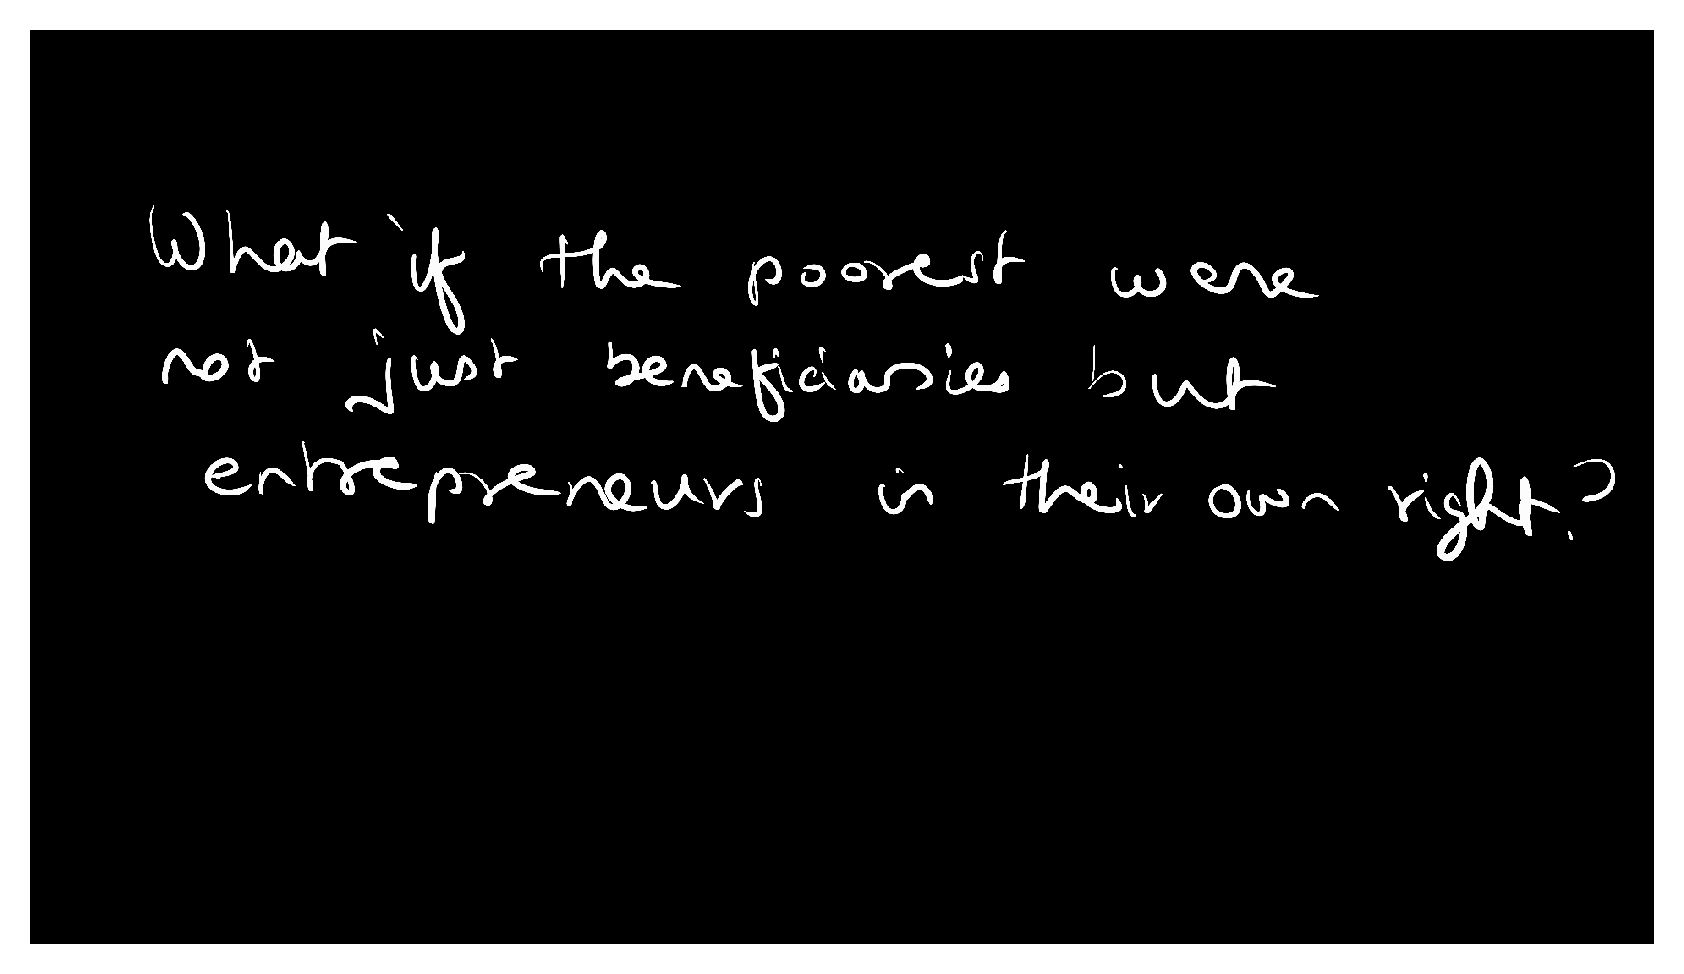 What if the poorest were
not just beneficiaries but
entrepreneurs in their own right?